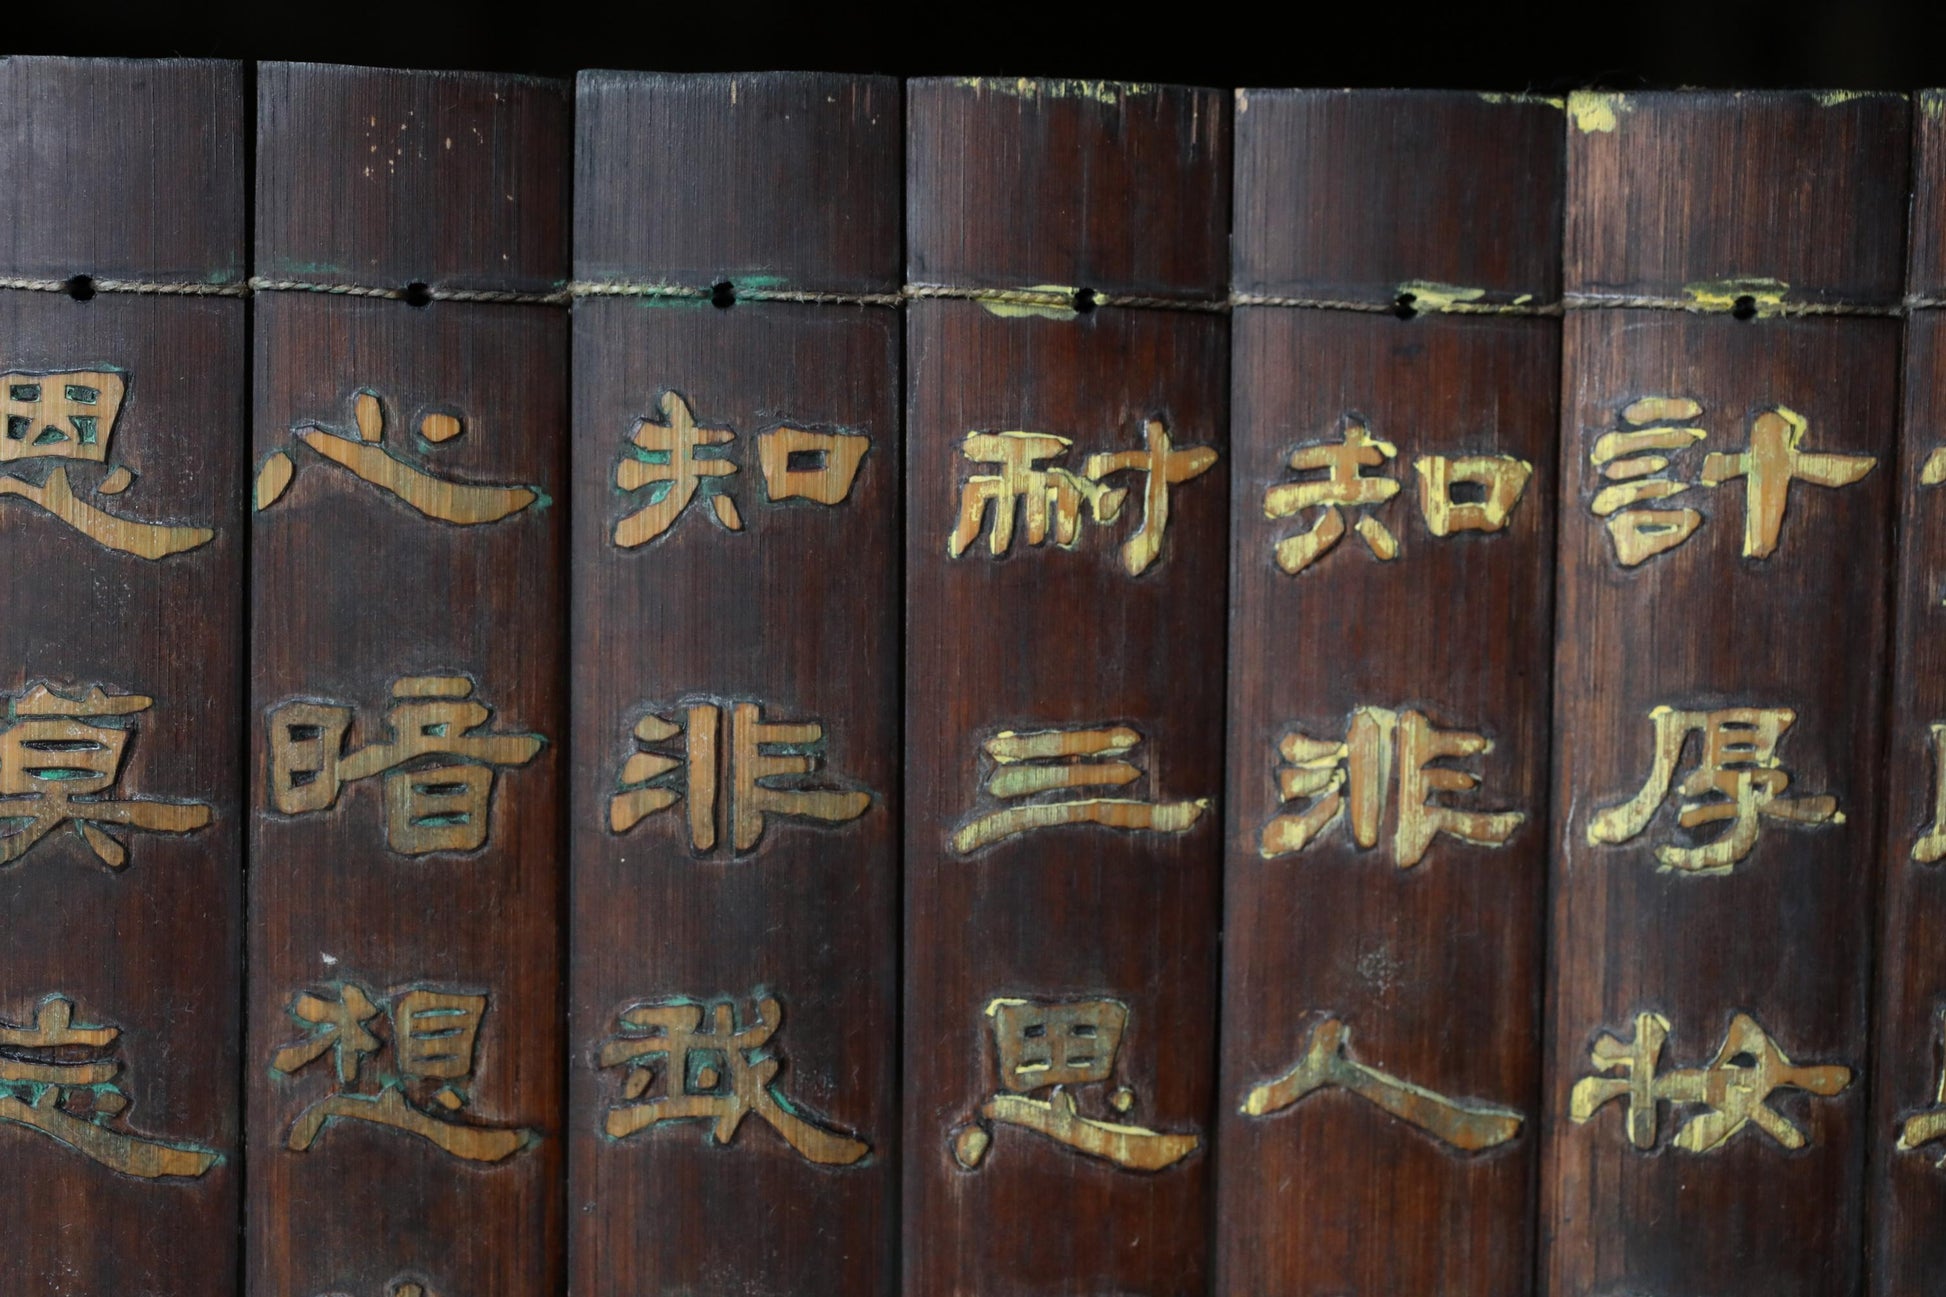 計厚
知非人
耐三思
知非武
心暗想
思莫